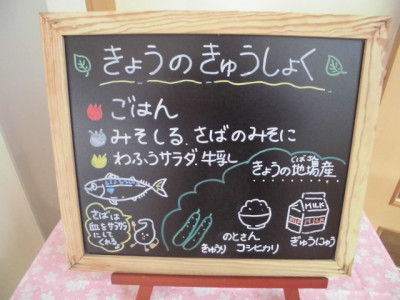 きょうのきゅうしょく
ごはん
みそしる、さばのみそに
わふうサラダ、牛乳
じばさん
きょうの地場産
さばは
血をサラサラ
にして
くれる
きゅうり
のとさん
コシヒカリ
MILK
MILK
ぎゅうにゅう